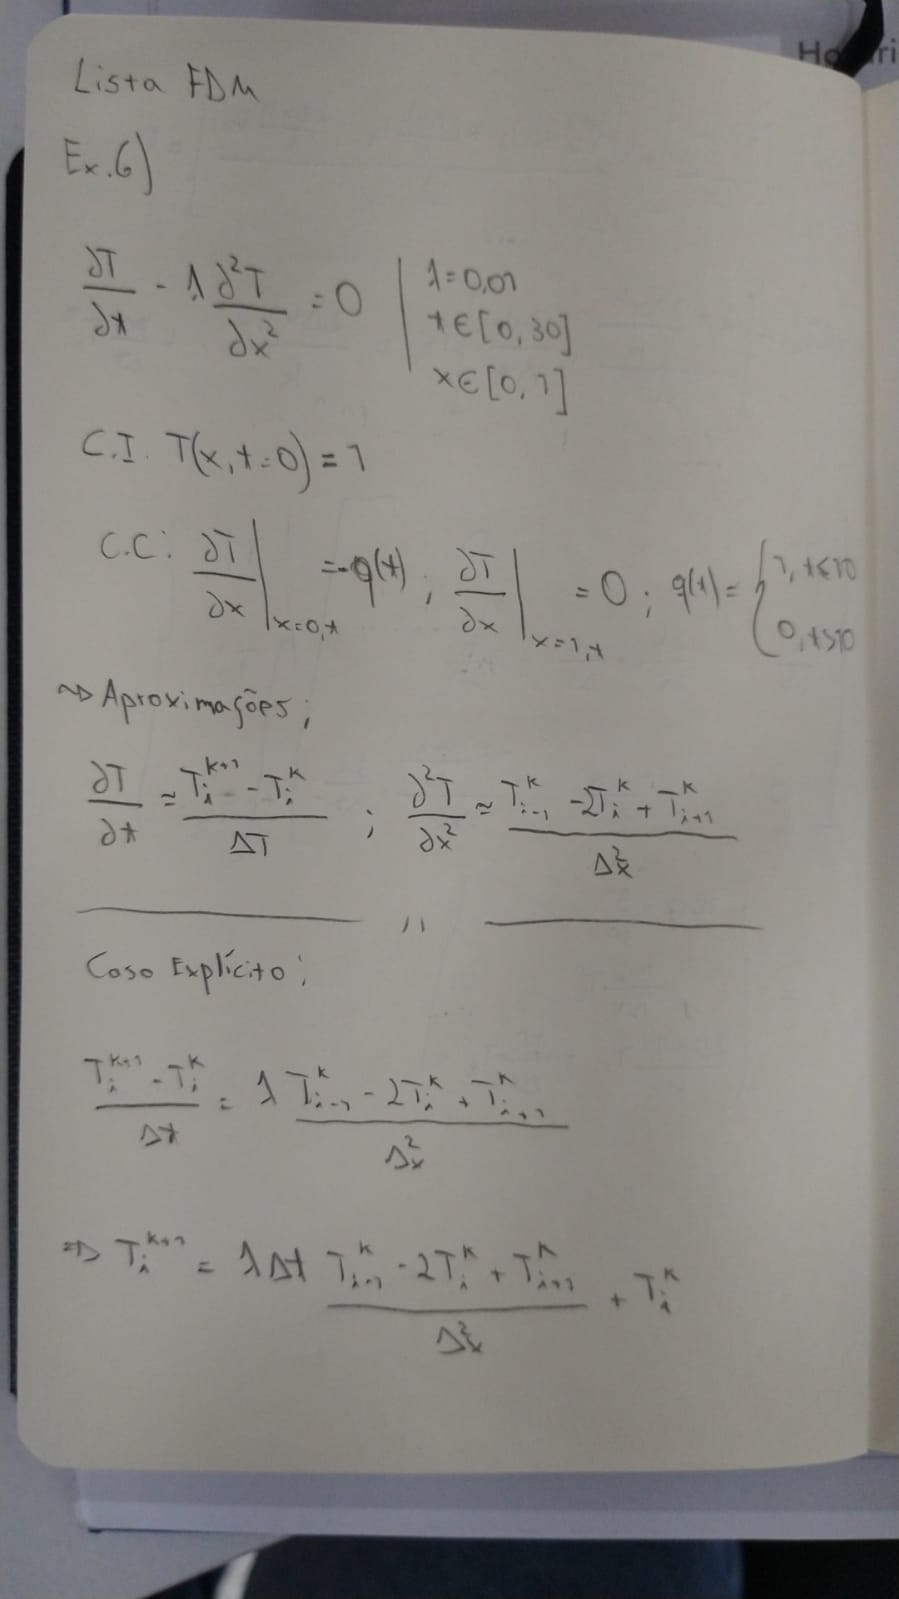 Ho ri
Lista FDM
Ex.6)
∂T/∂t - λ ∂²T/∂x² = 0 | λ=0,01
t∈[0,30]
x∈[0,1]
C.I. T(x,t=0)=1
C.C: ∂T/∂x|x=0,t =-q(t); ∂T/∂x|x=1,t = 0; q(t)= { 1, t≤10
0, t>10
~> Aproximações;
∂T/∂t ≈ (T_i^{k+1} - T_i^k)/ΔT ; ∂²T/∂x² ≈ (T_{i-1}^k - 2T_i^k + T_{i+1}^k)/Δx²
//
Caso Explícito;
(T_i^{k+1} - T_i^k)/Δt = λ (T_{i-1}^k - 2T_i^k + T_{i+1}^k)/Δx²
=> T_i^{k+1} = λΔt (T_{i-1}^k - 2T_i^k + T_{i+1}^k)/Δx² + T_i^k